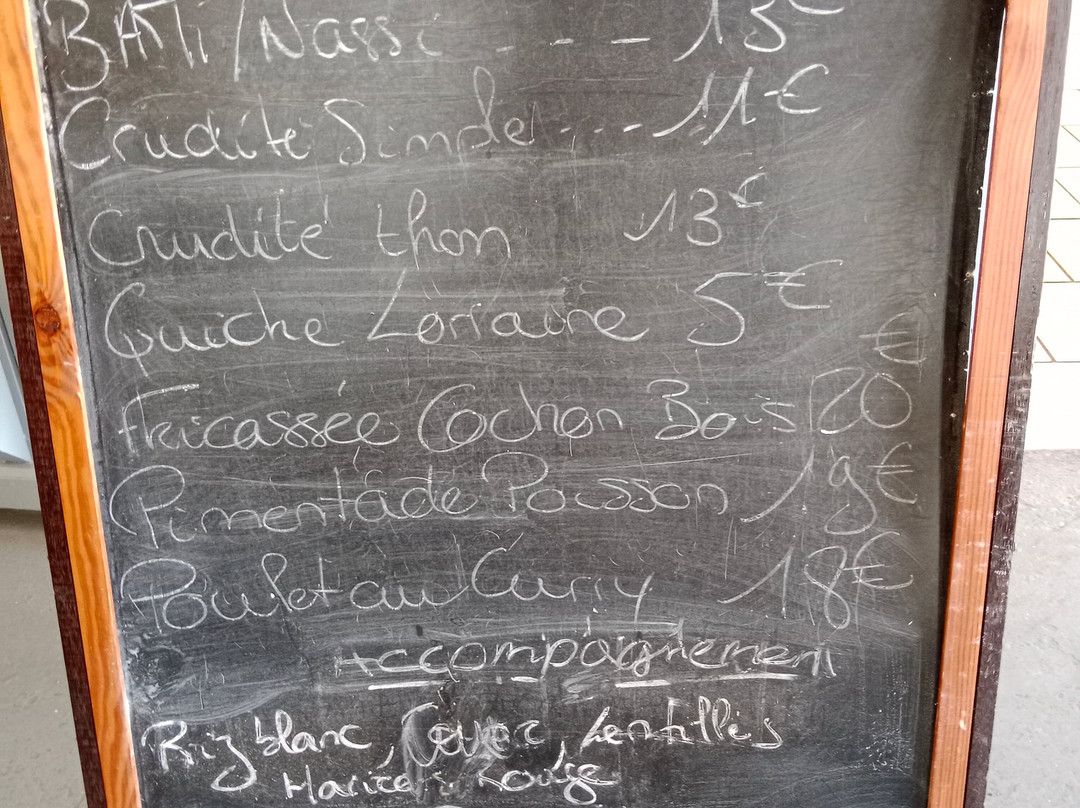 BAMi/Nassi - - - 13€
Crudité Simple - - - 11€
Crudité thon 13€
Quiche Lorraine 5€
Fricassée Cochon Bois 20€
Pimentade Poisson 19€
Poulet au Curry 18€
Accompagnement
Riz blanc, Lentilles
Haricots rouge